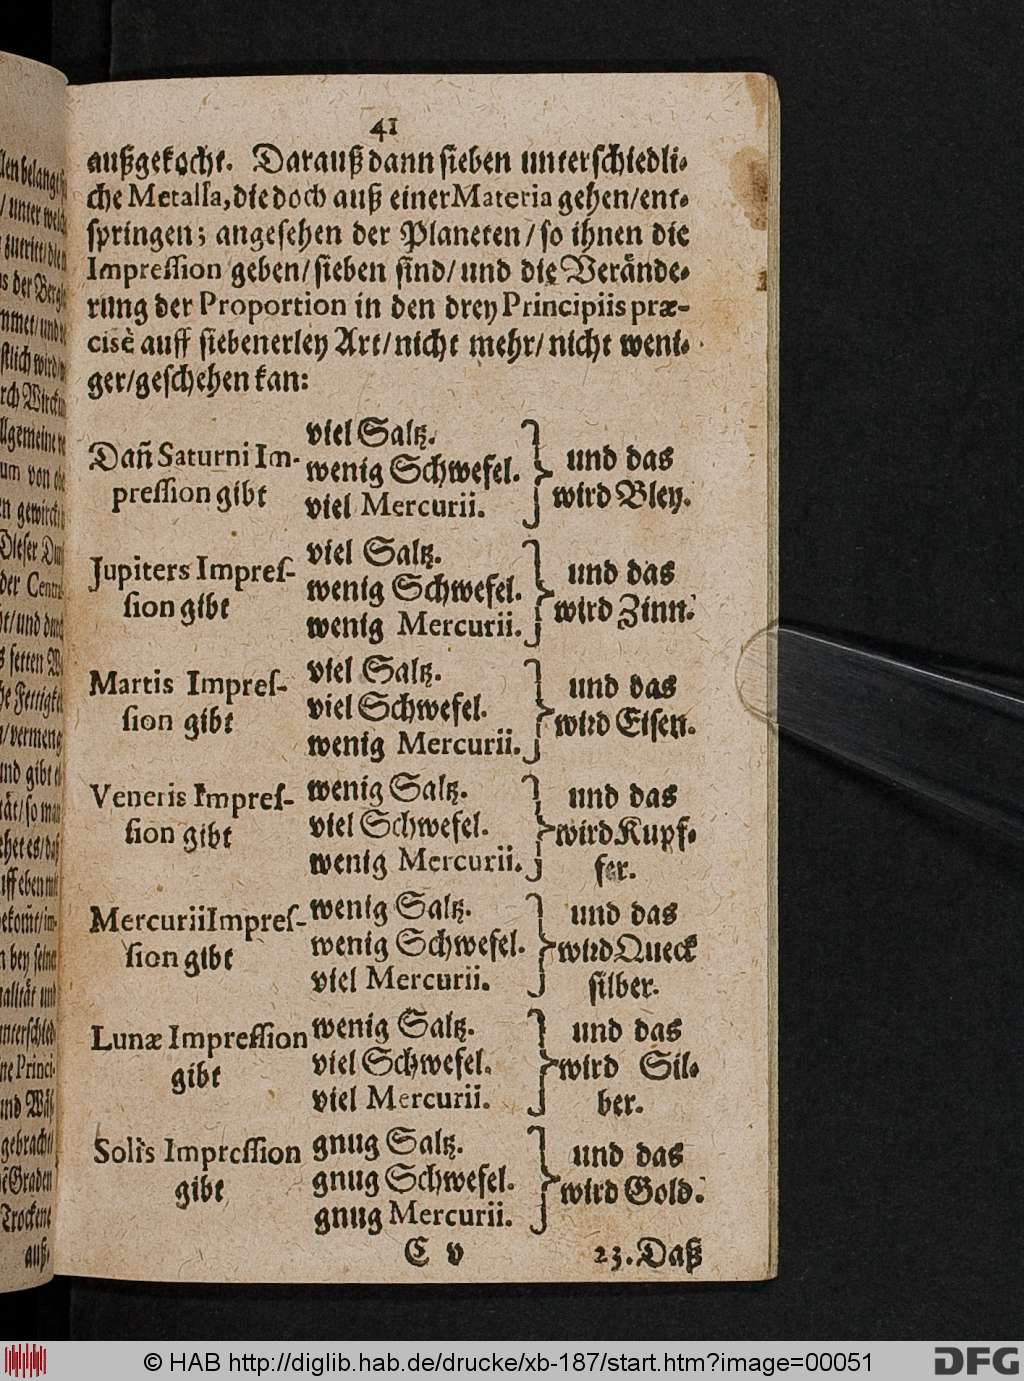 41
außgekocht. Darauß dann sieben unterschiedli-
che Metalla, die doch auß einer Materia gehen/ent-
springen; angesehen der Planeten/so ihnen die
Impression geben/sieben sind/und die Verände-
rung der Proportion in den drey Principiis præ-
cisè auff siebenerley Art/nicht mehr/nicht weni-
ger/geschehen kan:
Dañ Saturni Im-
pression gibt
viel Saltz.
wenig Schwefel.
viel Mercurii.
und das
wird Bley.
Jupiters Impres-
sion gibt
viel Saltz.
wenig Schwefel.
wenig Mercurii.
und das
wird Zinn.
Martis Impres-
sion gibt
viel Saltz.
viel Schwefel.
wenig Mercurii.
und das
wird Eisen.
Veneris Impres-
sion gibt
wenig Saltz.
viel Schwefel.
wenig Mercurii.
und das
wird Kupf-
fer.
Mercurii Impres-
sion gibt
wenig Saltz.
wenig Schwefel.
viel Mercurii.
und das
wird Queck
silber.
Lunæ Impression
gibt
wenig Saltz.
viel Schwefel.
viel Mercurii.
und das
wird Sil-
ber.
Solis Impression
gibt
gnug Saltz.
gnug Schwefel.
gnug Mercurii.
und das
wird Gold.
C v
23. Daß
© HAB http://diglib.hab.de/drucke/xb-187/start.htm?image=00051
DFG